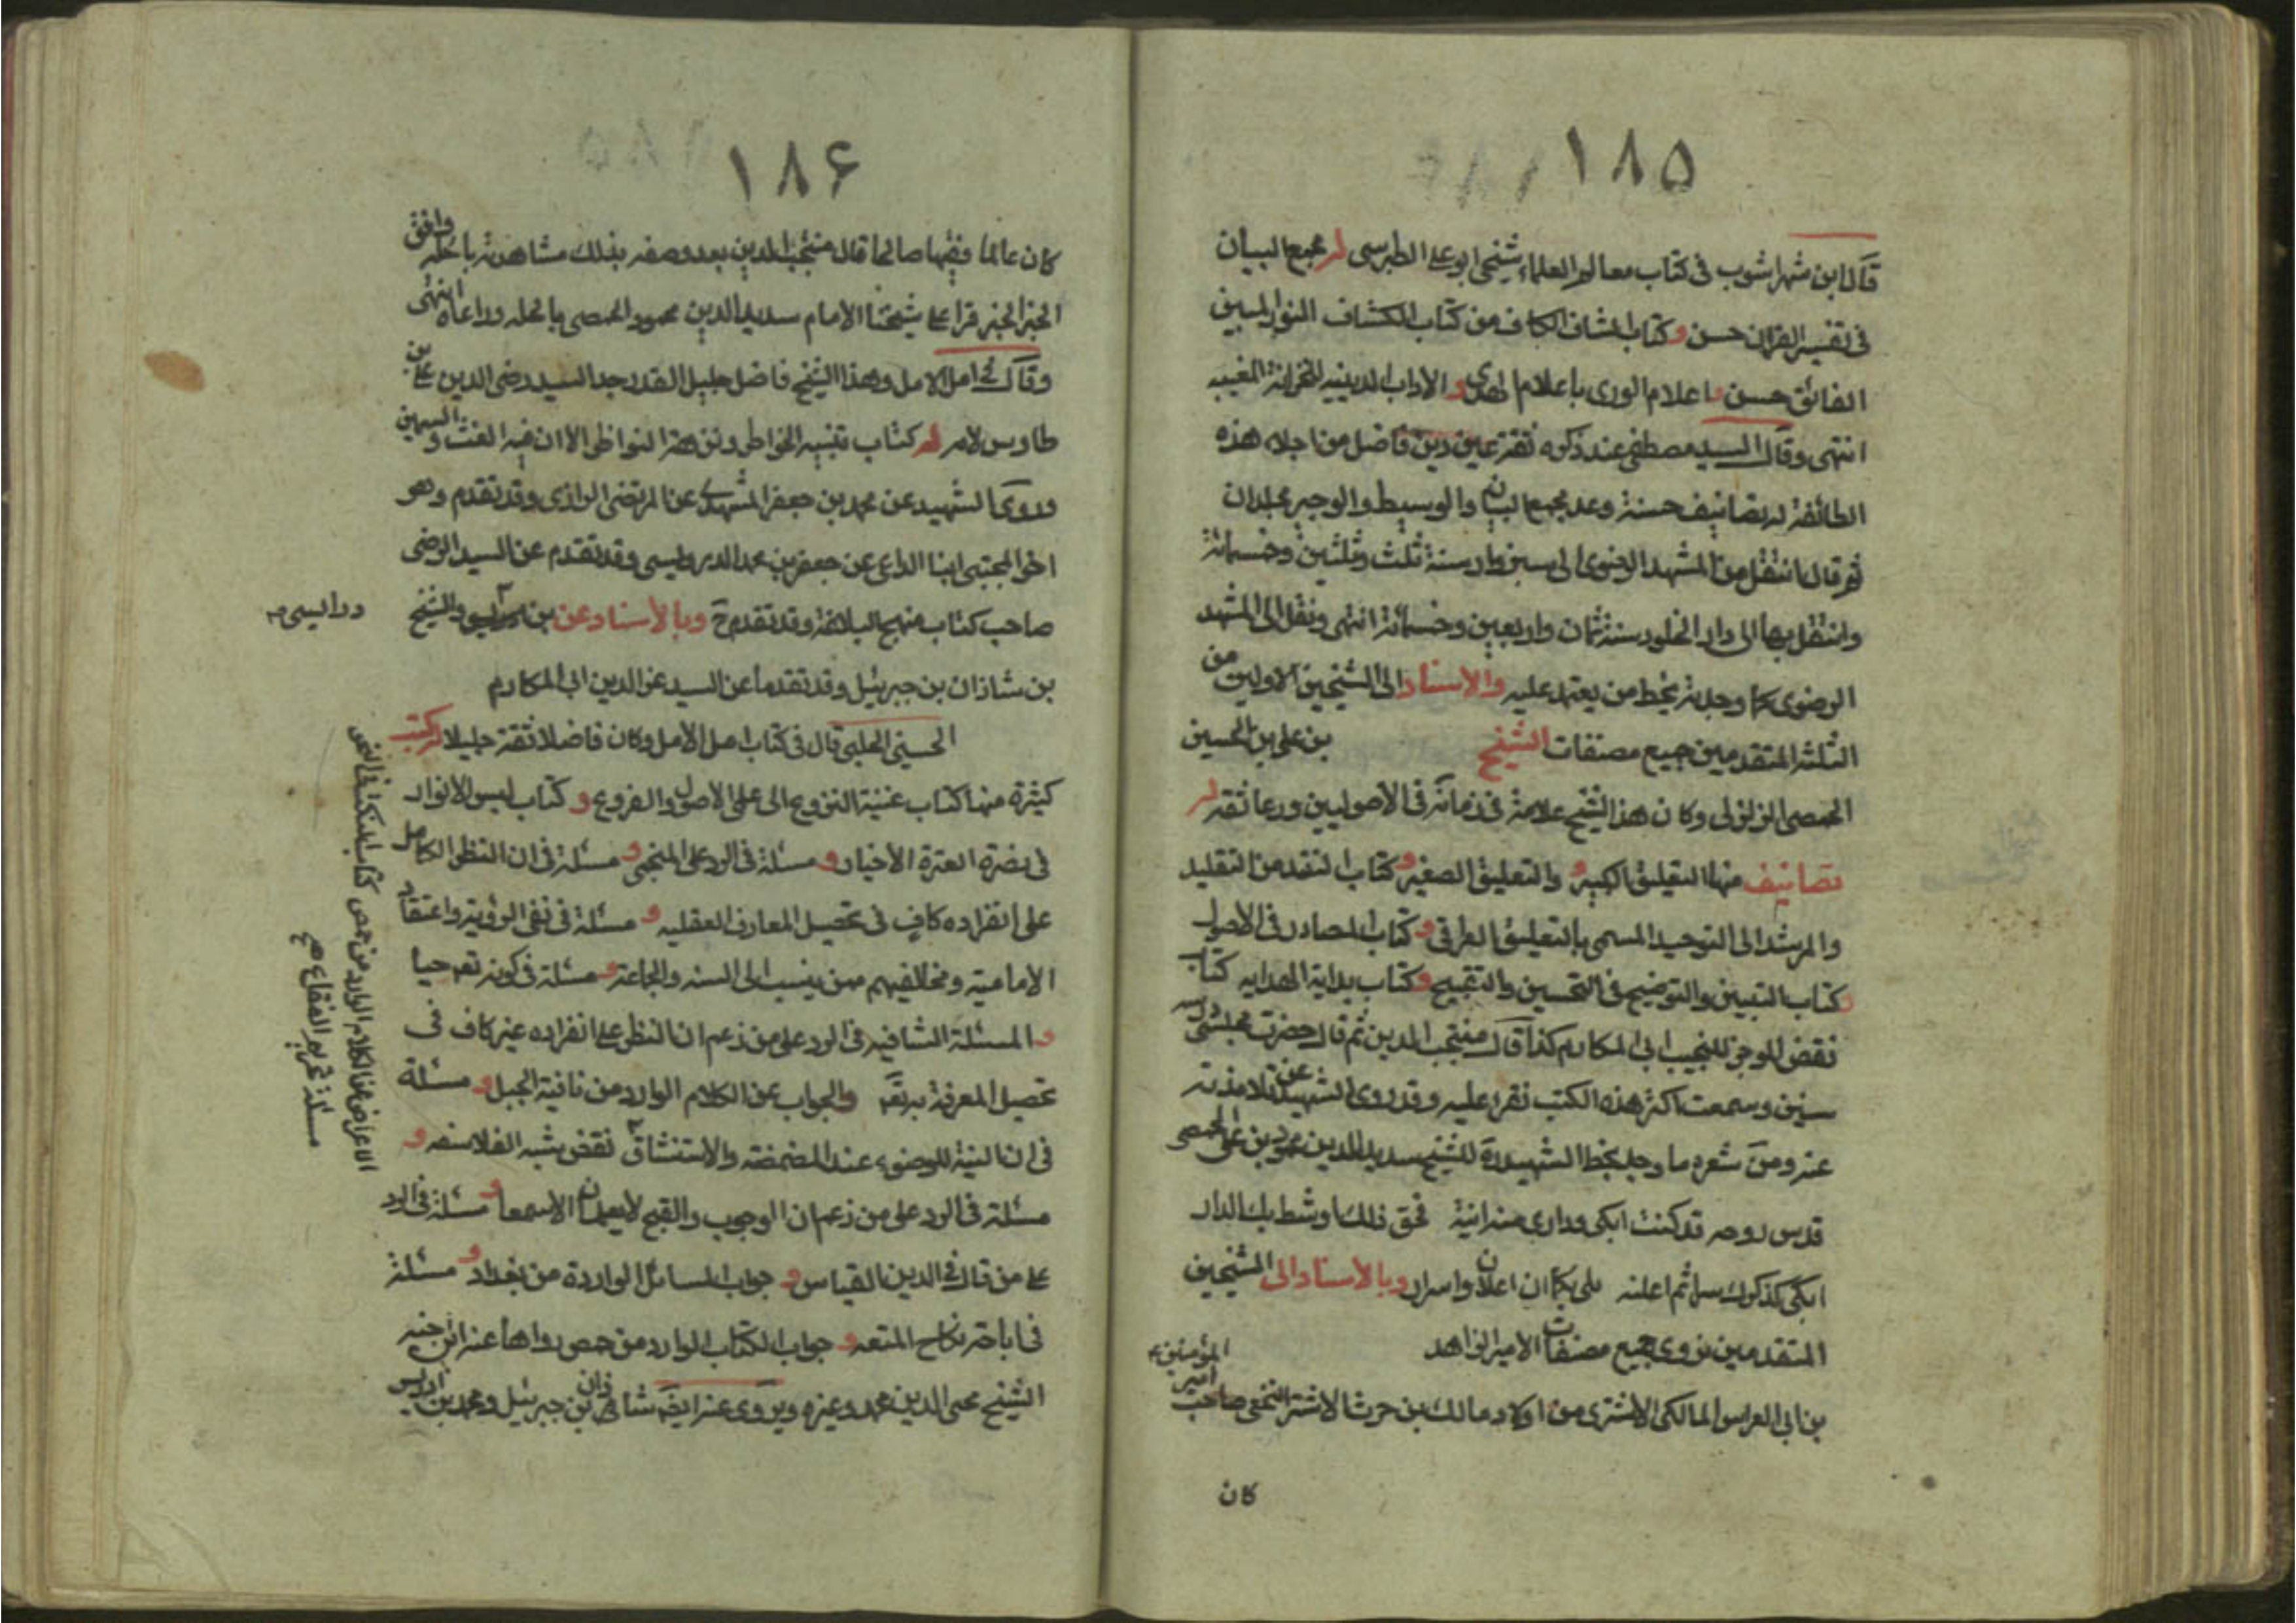 ١٨٥
قال ابن شهراشوب فى كتاب معالم العلماء شيخى ابو على الطبرسى له مجمع البيان
فى تفسير القران حسن و كتاب الشاف الكاف من كتاب الكشاف النور المبين
الفائق حسن و اعلام الورى باعلام الهدى و الاداب الدينيه للخزانة المغيبه
انتهى وقال السيد مصطفى عند ذكره ثقة عين دين فاضل من اجلاء هذه
الطائفة له تصانيف حسنة وعد مجمع البيان والوسيط والوجيز مجلدان
ثم قال انتقل من المشهد الرضوى الى سبزوار سنة ثلث وثلثين وخسمائة
وانتقل بها الى دار الخلود سنة ثمان واربعين وخسمائة انتهى ونقل الى المشهد
الرضوى كما وجدته بخط من يعتمد عليه والاسناد الى الشيخين الاولين من
الثلثه المتقدمين جميع مصنفات الشيخ بن على بن الحسين
الحمصى الرازى وكان هذا الشيخ علامة فى زمانه فى الاصوليين ورعا ثقه له
تصانيف منها التعليق الكبير و والتعليق الصغير و كتاب المنقذ من التقليد
والمرشد الى التوحيد المسمى بالتعليق العراقى و كتاب المصادر فى الاصول
و كتاب التبيين والتوضيح فى التحسين والتقبيح و كتاب بداية الهدايه كتاب
نقض الموجز للنجيب ابى المكارم كذا قال منتجب الدين ثم قال حضرت مجلس درسه
سنين وسمعت اكثر هذه الكتب تقرا عليه وقد روى الشهيد عن تلامذته
عنه ومن شعره ما وجد بخط الشهيد ره للشيخ سديد الدين محمود بن على الحمصى
قدس روحه قد كنت ابكى ودارى منه دانية فحق ذلك اوشط بك الدار
ابكى لذكراك سرا ثم اعلنه فلى بكا ان اعلان واسرار وبالاسناد الى الشيخين
المتقدمين نروى جميع مصنفات الامير الزاهد
بن ابى الفراس المالكى الاشترى من اولاد مالك بن حرث الاشتر النخعى صاحب امير المؤمنين ع
كان
١٨۶
كان عالما فقيها صالحا قال منتجب الدين بعد وصفه بذلك شاهدته بالحله وافق
الخبر الخبر قرا على شيخنا الامام سديد الدين محمود الحمصى بالحله وراعاه انتهى
وقال فى امل الامل وهذا الشيخ فاضل جليل القدر جد السيد رضى الدين على بن
طاوس لامه له كتاب تنبيه الخواطر ونزهة النواظر الا ان فيه الغث والسمين
وروى الشهيد عن محمد بن جعفر المشهدى عن المرتضى الرازى وقد تقدم وهو
اخو المجتبى ابنا الداعى عن جعفر بن محمد الدوريستى وقد تقدم عن السيد الرضى
صاحب كتاب نهج البلاغة وقد تقدم ح وبالاسناد عن بن والشيخ
در ابسى
بن شاذان بن جبرئيل وقد تقدما عن السيد عز الدين ابى المكارم
الحسينى الحلبى قال فى كتاب امل الامل وكان فاضلا ثقة جليلا له كتب
كثيرة منها كتاب غنية النزوع الى علم الاصول والفروع و كتاب قبس الانوار
فى نصرة العترة الاخيار و مسئلة فى الرد على المنجمى و مسئلة فى ان النظر الكامل
على انفراده كاف فى تحصيل المعارف العقليه و مسئلة فى نفى الرؤية واعتقاد
الامامية ومخالفيهم ممن ينسب الى السنه والجماعة و مسئلة فى كونه تعه حيا
و المسئلة الشافيه فى الرد على من زعم ان النظر على انفراده غير كاف فى
تحصيل المعرفة به تعه والجواب عن الكلام الوارد من نافية الجبل و مسئلة
فى ان النية للوضوء عند المضمضة والاستنشاق نقض شبه الفلاسفه و
مسئلة فى الرد على من زعم ان الوجوب والقبح لا يعلمان الا سمعا و مسئلة فى الرد
على من قال فى الدين بالقياس و جواب المسائل الواردة من بغداد و مسئلة
فى اباحة نكاح المتعه و جواب الكتاب الوارد من حمص رواها عنه ابن اخيه
الشيخ محى الدين محمد وغيره ويروى عنه ايضا شاذان بن جبرئيل ومحمد بن ادريس
الاعراض عن الكلام الوارد من حمص كتاب النكت فى النحو
مسئلة تحريم الفقاع صح